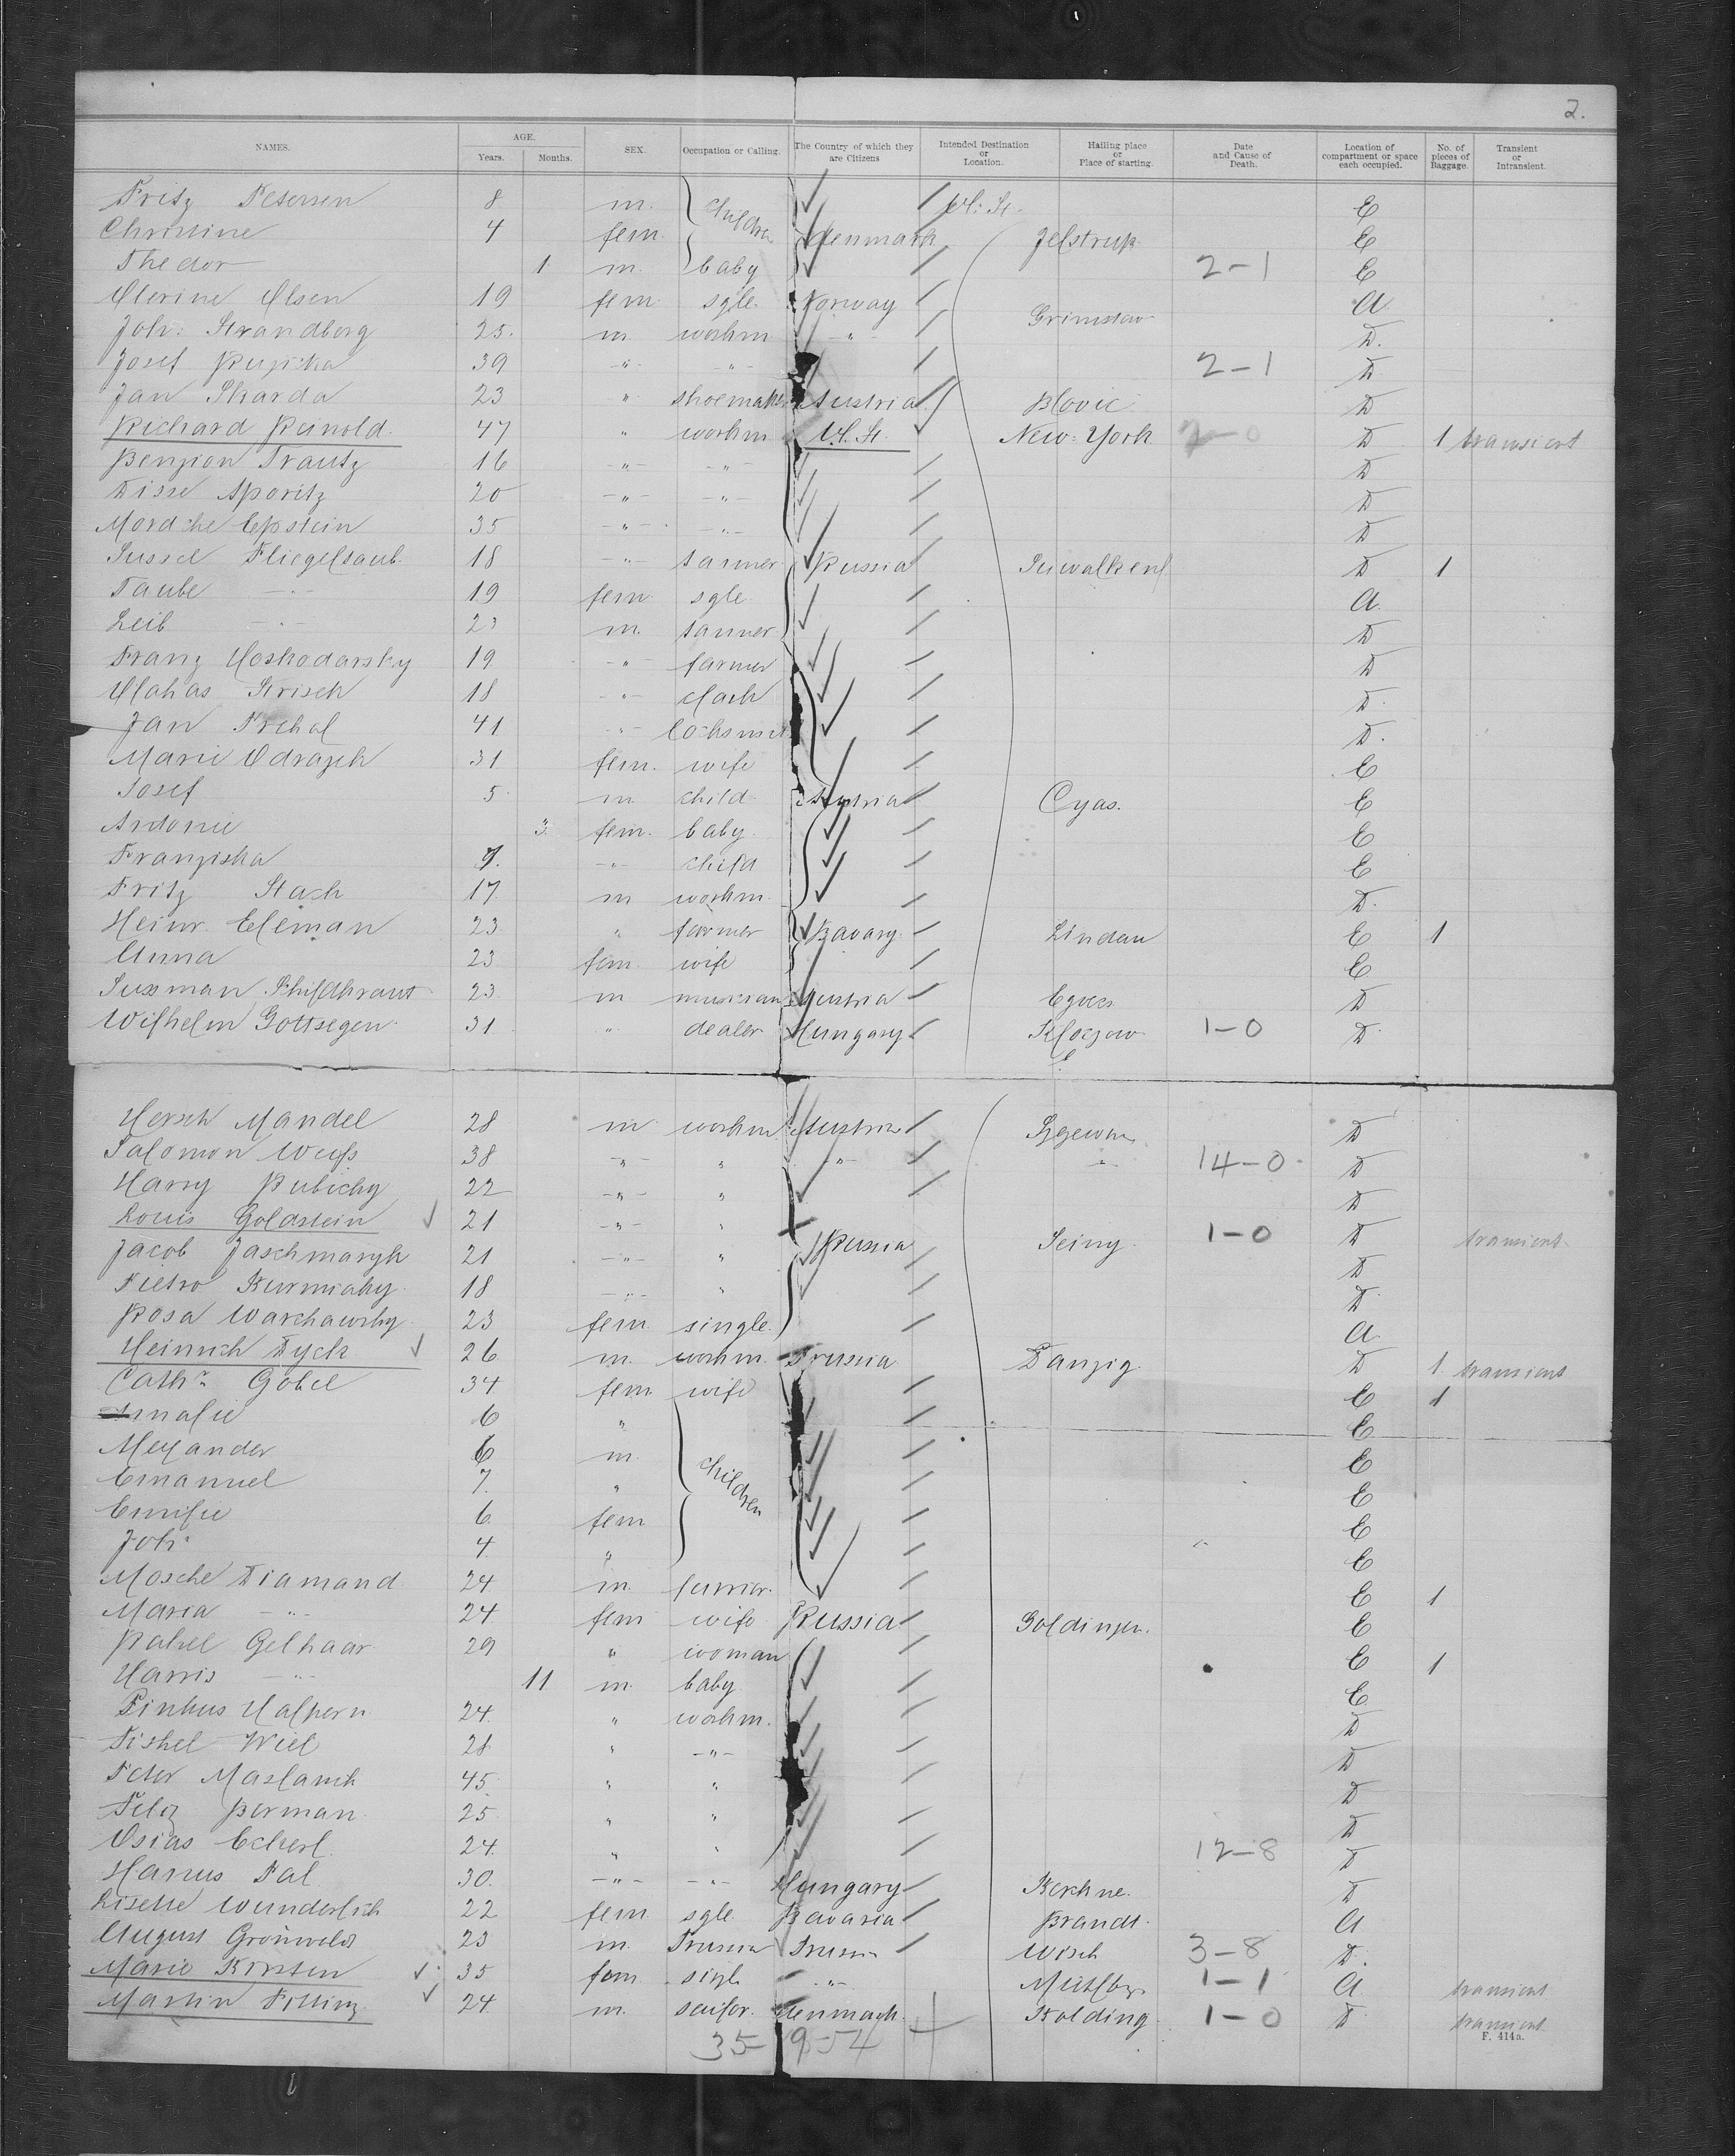 2.
NAMES. AGE. Years. Months. SEX. Occupation or Calling. The Country of which they are Citizens Intended Destination or Location. Hailing place or Place of starting. Date and Cause of Death. Location of compartment or space each occupied. No. of pieces of Baggage. Transient or Intransient.
Fritz Petersen 8 m. children U. St. E
Christine 4 fem. Denmark Jelstrup E
Thedor 1 m. baby 2-1 E
Olerine Olsen 19 fem. sgle. Norway a.
Joh: Strandberg 25. m. workm. -"- Grimstaw D.
Josef Ruzicka 39 -"- -"- 2-1 D
Jan Skarda 23 " shoemaker Austria Blovic D
Richard Reinold. 47 " workm. U. St. New-York D 1 transient
Benzion Trautz 16 -"- -"- D
Disse Aporitz 20 -"- -"- D
Mordche Epstein 35 -"- -"- D
Sussel Fliegeltaub. 18 -"- tanner Russia Suwalken D 1
Taube -"- 19 fem. sgle. a.
Leib -"- 23 m. tanner D
Franz Hoskodarsky 19. -"- farmer D
18 -"- D.
Jan Prchal 41 -"- D.
Marie Odrazek 31 fem. wife E
Josef 5 m child Austria Cyas. E
Antonie 3. fem. baby. E
Franziska 7. -"- child E
Fritz Stach 17. m workm. D.
Heinr. Eleman 23. " farmer Bavary. Lindau E 1
Anna 23 fem. wife E
Sussman Schildkraut 23. m musician Austria D
Wilhelm Gottsegen. 31. " dealer Hungary 1-0 D
Hersch Mandel 28 m workm. Austria D
Salomon Weiss 38 -"- " -"- -"- 14-0 D
Harry Rubicky 22 -"- " D
Louis Goldstein 21 -"- " Russia Seiny. 1-0 D transient
Jacob 21 -"- " D
Pietro 18 -"- " D
Rosa Warschawsky 23 fem. single. a.
Heinrich Dyck 26 m. workm. Prussia Danzig. D 1 transient
Cathr. Gobel 34 fem. wife E 1
Amalie 6 " children E
Alexander 6 m. E
Emanuel 7. " E
Emilie 6 fem E
Joh. 4. " E
Mosche Diamand 24 m. furrier. E 1
Maria -"- 24 fem wife Russia Goldingen. E
Rahel Gelhaar 29 " woman E 1
Harris -"- 11 m. baby E
Pinkus Halpern 24. " workm. D
Fishel Wiel 28 " -"- D
Peter 45 " " D
Feliz Berman. 25 " " D
Osias Eckerl. 24. " " 12-8 D
Hanus Pal. 30. -"- -"- Hungary D
Lisette Wunderlich 22 fem. sgle. Bavaria Brandt. a
August Grönweld 23 m. Prussia Prussia Wisch 3-8 D.
Marie Kirsten 35 fem. singl. -"- 1-1 a transient
Martin Pilling. 24 m. sailor. Denmark. Kolding. 1-0 D transient
35 954
F. 414a.